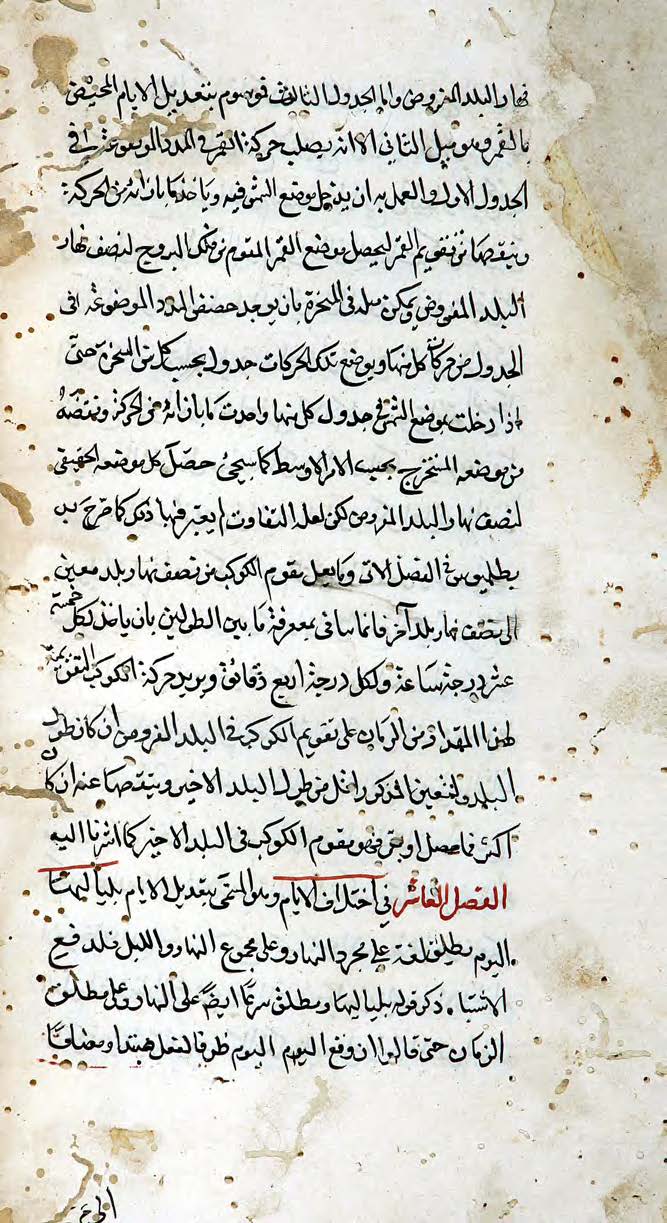 نهار البلد المفروض واما الجدول الثالث فموسوم بتعديل الايام المختص
بالقمر وهو مثل الثاني الا انه يطلب حركة القمر في المدد الموضوعة في
الجدول الاول والعمل به ان يدخل بموضع الشمس فيه وياخذ ما بازائه من الحركة
وينقصها من تقويم القمر ليحصل موضع القمر المقوم من فلك البروج لنصف نهار
البلد المفروض ويمكن مثله في المتحيرة بان يوجد حصص المدد الموضوعة في
الجدول من حركات كل منها ويوضع تلك الحركات جدولا بحسب كل من المتحيرة حتى
اذا دخلت بموضع الشمس في جدول كل منها واخذت ما بازائه من الحركة ونقصته
من موضعه المستخرج بحسب الامر الاوسط كما سيجئ حصل كل موضعه الحقيقي
لنصف نهار البلد المفروض لكن لقلة التفاوت لم يعتبر فيها ذلك كما صرح به
بطلميوس في الفصل الاتي وما يعمل مقوم الكوكب من نصف نهار بلد معين
الى نصف نهار بلد آخر فانما يتأتى بمعرفة ما بين الطولين بان ياخذ لكل خمسة
عشر درجة ساعة ولكل درجة اربع دقائق ويزيد حركة الكوكب التقويمية
لهذا المقدار من الزمان على تقويم الكوكب في البلد المفروض ان كان طول
البلد المعين المذكور اقل من طول البلد الاخير وينقصها عنه ان كان
اكثر فما حصل او بقي فهو مقوم الكوكب في البلد الاخير كما اشرنا اليه
الفصل العاشر في اختلاف الايام وهو المسمى بتعديل الايام بلياليها
اليوم يطلق لغة على مجرد النهار وعلى مجموع النهار والليل فلدفع
الاشتباه ذكر قوله بلياليها ويطلق مرة ايضا على النهار وعلى مطلق
الزمان حتى قالوا ان وقع اليوم اليوم ظرفا لفعل ممتد او مضافا